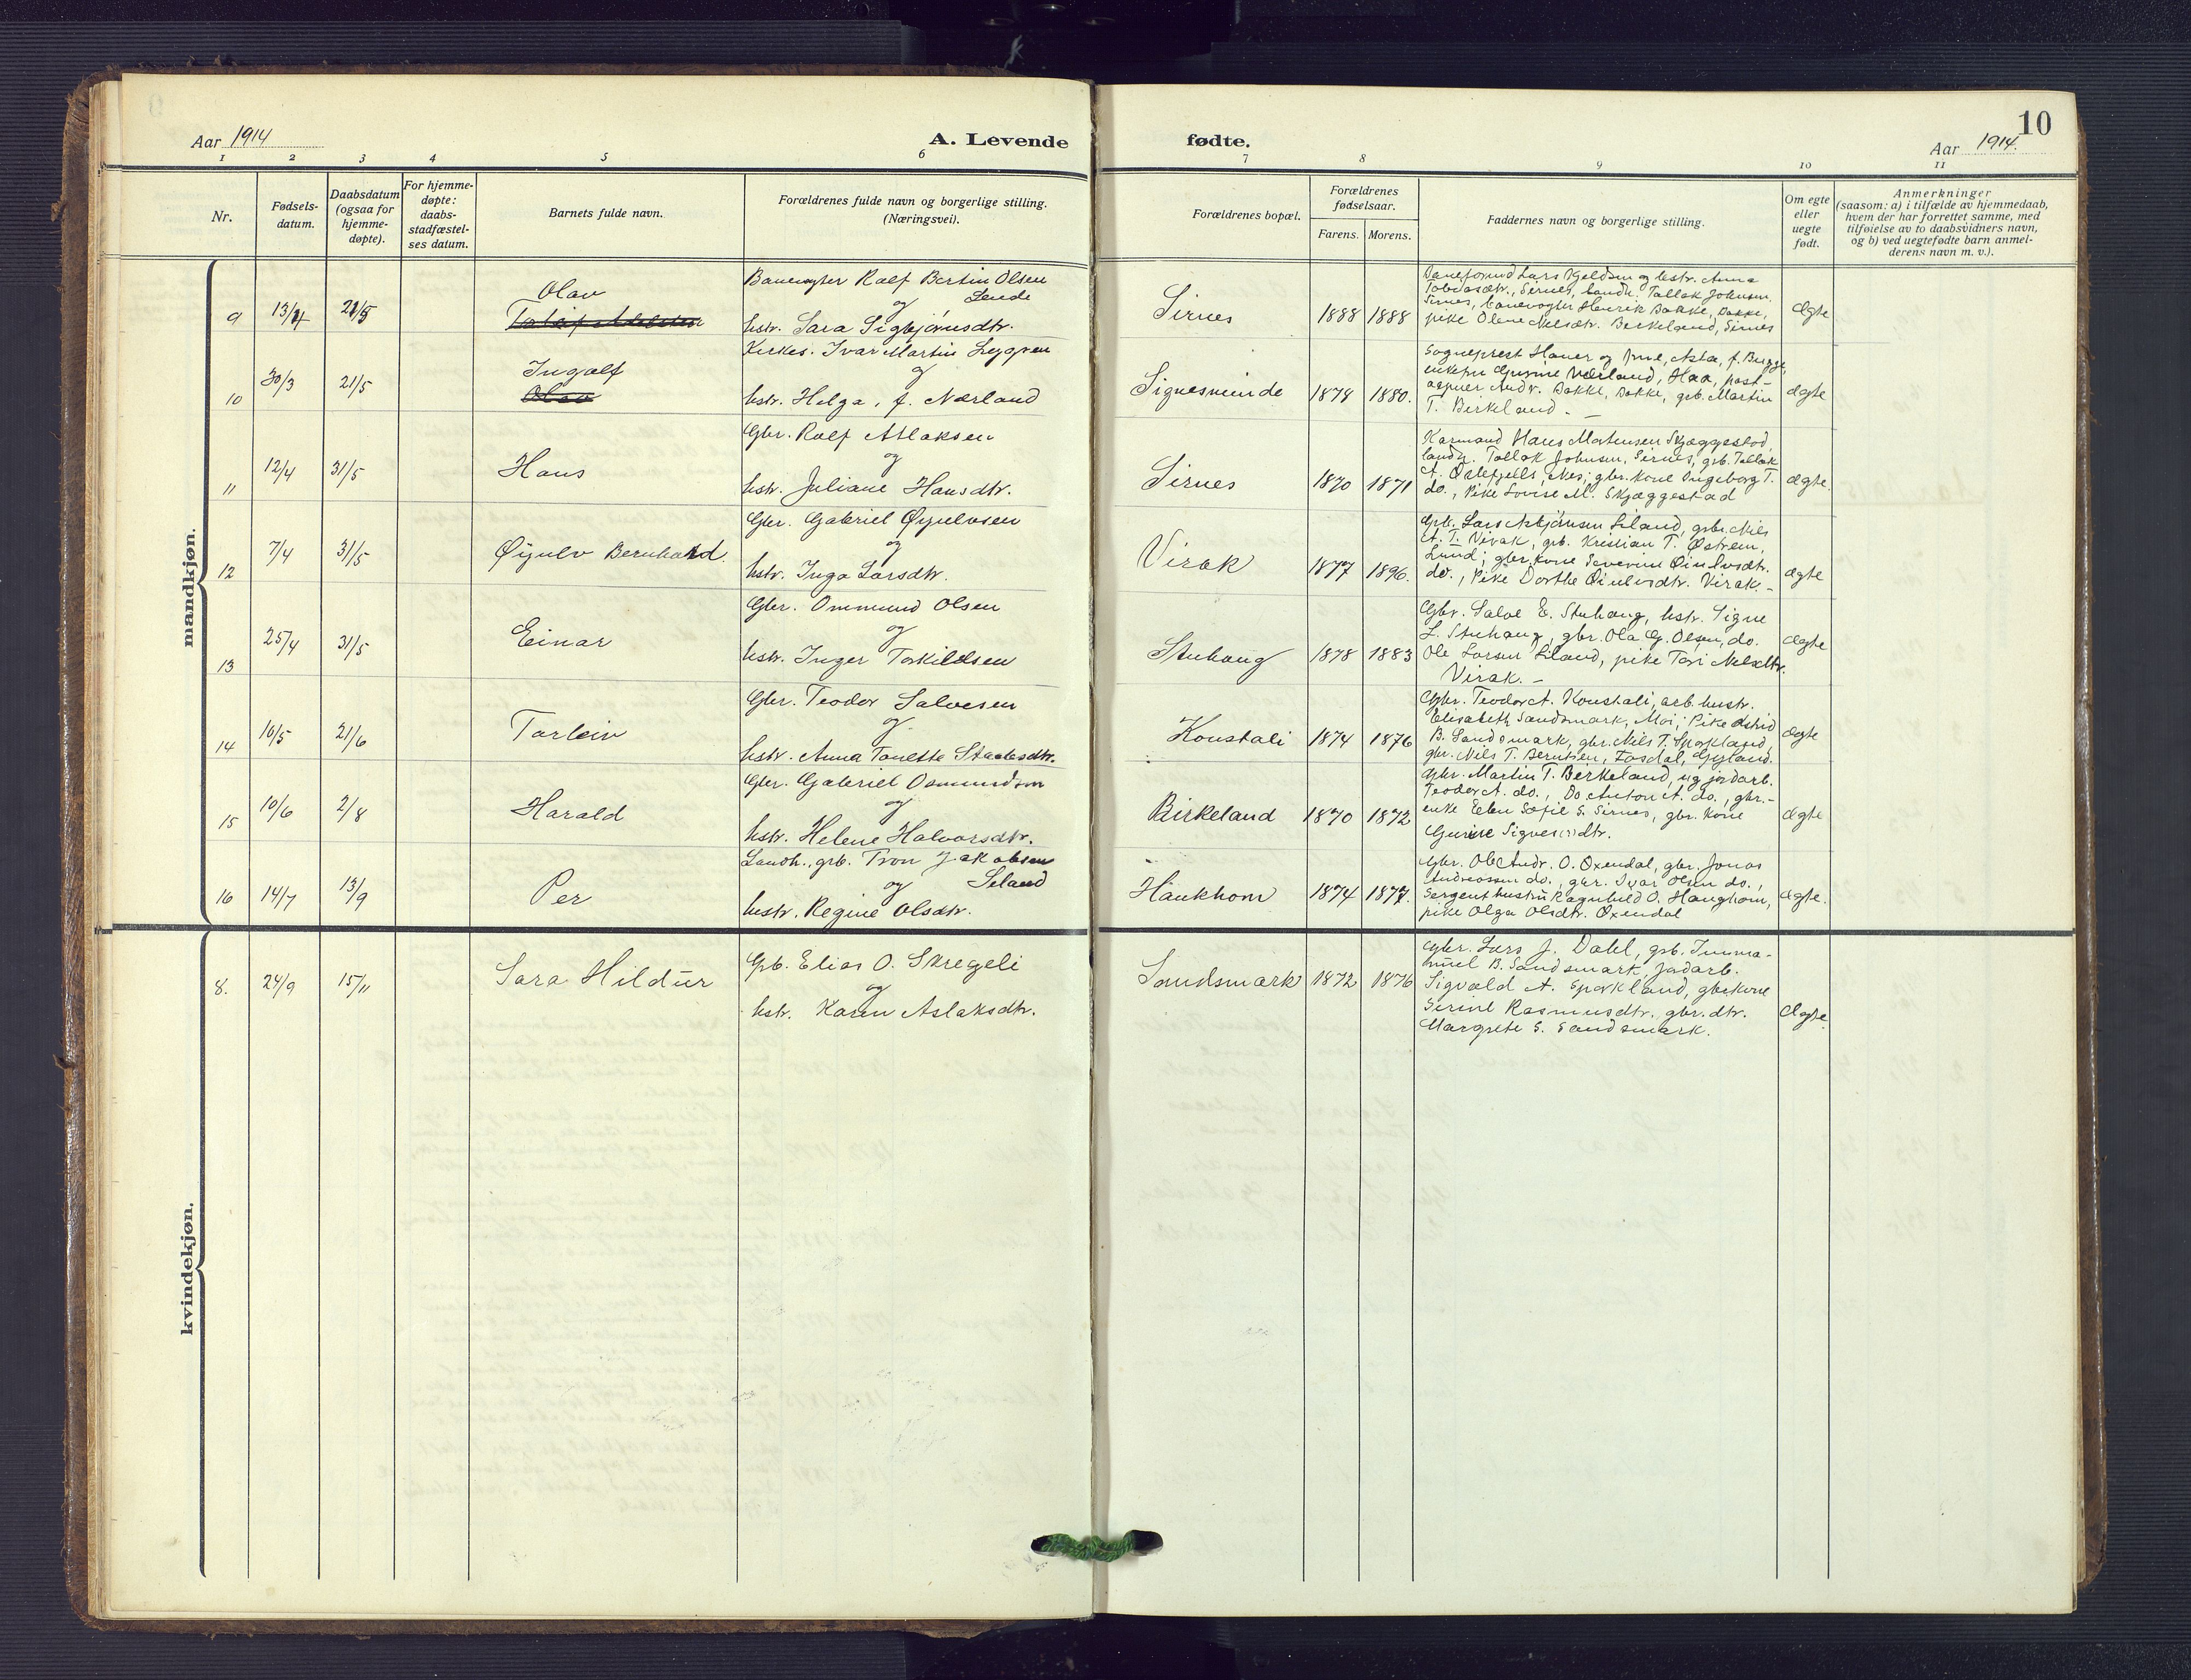 10
Aar 1914
A. Levende fødte.
Aar 1914.
1 2 3 4 5 6 7 8 9 10 11
Nr.
Fødsels-
datum.
Daabsdatum
(ogsaa for
hjemme-
døpte).
For hjemme-
døpte:
daabs-
stadfæstel-
ses datum.
Barnets fulde navn.
Forældrenes fulde navn og borgerlige stilling.
(Næringsvei).
Forældrenes bopæl.
Forældrenes
fødselsaar.
Farens. Morens.
Faddernes navn og borgerlige stilling.
Om egte
eller
uegte
født.
Anmerkninger
(saasom: a) i tilfælde av hjemmedaab,
hvem der har forrettet samme, med
tilføielse av to daabsvidners navn,
og b) ved uegtefødte barn anmel-
derens navn m. v.).
mandkjøn.
9 13/4 21/5
Olav
Banevogter Ralf Bertin Olsen
og Lende
hstr. Sara Sigbjørnsdtr.
Sirnes 1888 1888
Baneformd Lars Kjeldsen og hstr. Anna
Tobiasdtr., Sirnes, landh. Tallak Johnsen,
Sirnes, banevogter Henrik Bakke, Bakke,
pike Olene Nelsdtr. Berkeland, Sirnes
ægte
10 30/3 21/5
Ingolf
Olav
Kirkes. Ivar Martin Seggven
og
hstr. Helga, f. Nærland
Signesminde 1879 1880.
Sogneprest Hauer og frue, Asta, f. Bugge,
enkefru Gurine Nærland, Haa, post-
aapner Andr. Bakke, Bakke, grb. Martin
T. Birkland. –
ægte
11 12/4 31/5
Hans
Gbr. Ralf Aslaksen
og
hstr. Juliane Hansdtr.
Sirnes 1870 1871
Karmand Hans Mortensen Skjæggestad,
landh. Tallak Johnsen, Sirnes, grb. Tallak
A. Østefjells, Nes; gbr.kone Ingeborg T.
do., Pike Lovise M. Skjæggestad
ægte.
12 7/4 31/5
Øyulv Bernhard.
Gbr. Gabriel Øyulvsen
og
hstr. Inga Larsdtr.
Virak 1877 1896.
Grb. Lars Asbjörnsen Liland, grbr. Nils
A. T. Virak, grb. Kristian T. Østrem,
Lund; gbr.kone Severine Øiulvsdtr.
do., Pike Dorthe Øiulvsdtr. Virak. –
ægte
13 25/4 31/5
Einar
Gbr. Ommund Olsen
og
hstr. Inger Torkildsen
Stuhaug 1878 1883
Gbr. Salve E. Stuhaug, hstr. Signe
L. Stuhaug, gbr. Ola G. Olsen, do.
Ole Larsen Liland, pike Tori Nelsdtr.
Virak. –
ægte
14 16/5 21/6
Torleiv
Gbr. Teodor Salvesen
og
hstr. Anna Tonette Staalesdtr.
Konstali 1874 1876
Gbr. Teodor A. Konstali, arb.hustr.
Elisabeth Sandsmark, Moi; Pike Astrid
B. Sandsmark, gbr. Nils T. Sporkland,
gbr. Nils T. Berntsen, Josdal, Gyland.
ægte
15 10/6 2/8
Harald
Gbr. Gabriel Osmundsen
og
hstr. Helene Halvorsdtr.
Birkeland 1870 1872
Gbr. Martin T. Birkeland, ug. jordarb.
Teodor A. do., Do Anton A. do., gbr.-
enke Elen Sofie S. Sirnes, gbr. kone
Gurine Signes(?)dtr.
ægte
16 14/7 13/9
Per
Landh., grb. Tron Jakobsen
og Seland
hustr. Regine Olsdtr.
Haukhom 1874 1877.
Gbr. Ole Andr. O. Oxendal, gbr. Jonas
Andreassen do., gbr. Ivar Olsen do.,
Sergenthustrü Ragnhild O. Haughom,
pike Olga Olsdtr. Oxendal
ægte.
kvindekjøn.
8. 24/9 15/11
Sara Hildür
Grb. Elias O. Skregeli
og
hstr. Karen Aslaksdtr.
Sandsmark 1872 1876
Gbr. Lars J. Dahl, grb. Imma-
nüel B. Sandsmark, Jordarb.
Sigvald A. Sporkland, gbrkone
Serine Rasmusdtr., gbr.dtr.
Margrete S. Sandsmark.
Ægte.